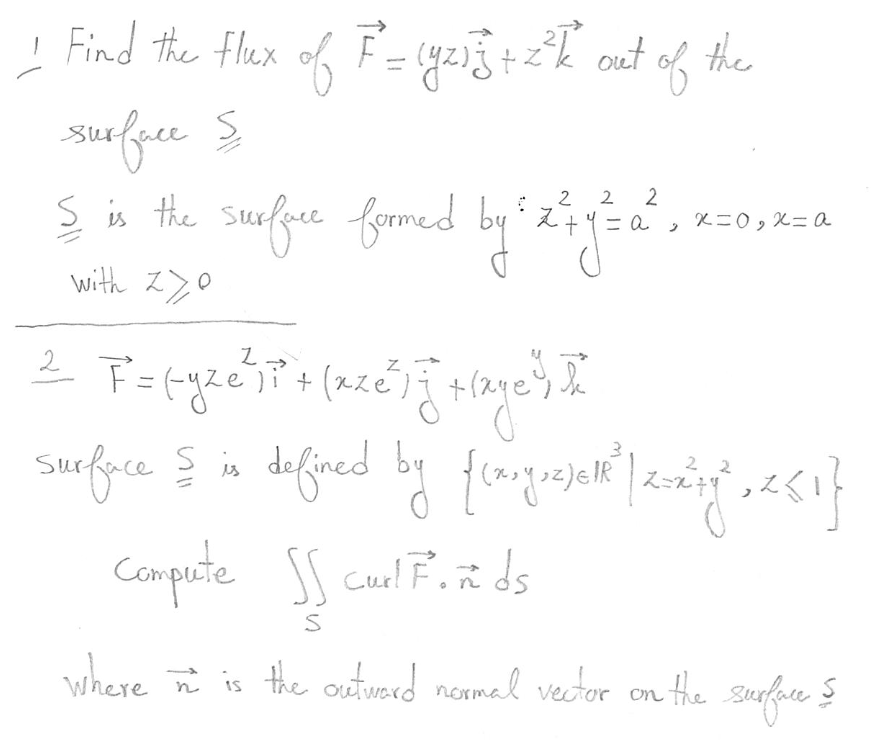 1 Find the flux of F⃗ = (yz)j⃗ + z²k⃗ out of the
surface S
S is the surface formed by : z² + y² = a² , x=0, x=a
with z ⩾ 0
2 F⃗ = (-yze^z) i⃗ + (xze^z) j⃗ + (xye^y) k⃗
surface S is defined by {(x,y,z)∈ℝ³ | z=x²+y² , z⩽1}
Compute ∬_S curl F⃗ . n⃗ ds
where n⃗ is the outward normal vector on the surface S